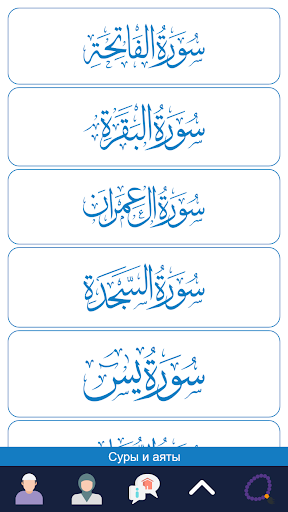 سُورَةُ الفَاتِحَةِ
سُورَةُ البَقَرَةِ
سُورَةُ آلِ عِمْرَان
سُورَةُ السَّجْدَةِ
سُورَةُ يسٓ
سُورَةُ
Суры и аяты